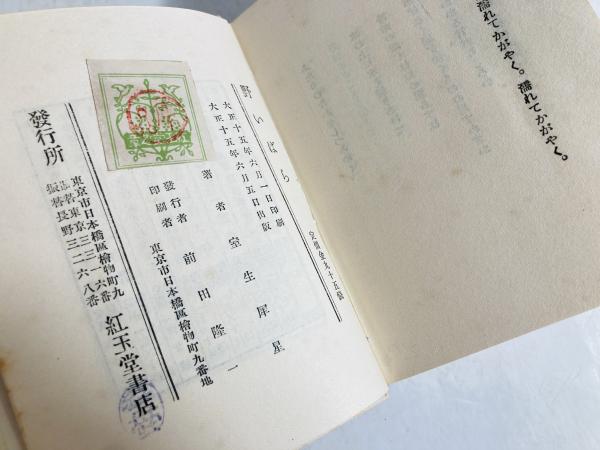 濡れてかがやく。
濡れてかがやく。
野いばら
定價金九十五錢
大正十五年六月一日印刷
大正十五年六月五日出版
著者 室生犀星
發行者
印刷者
前田隆一
東京市日本橋區檜物町九番地
發行所
東京市日本橋區檜物町九
振替東京三三一六番
振替長野三二六八番
紅玉堂書店